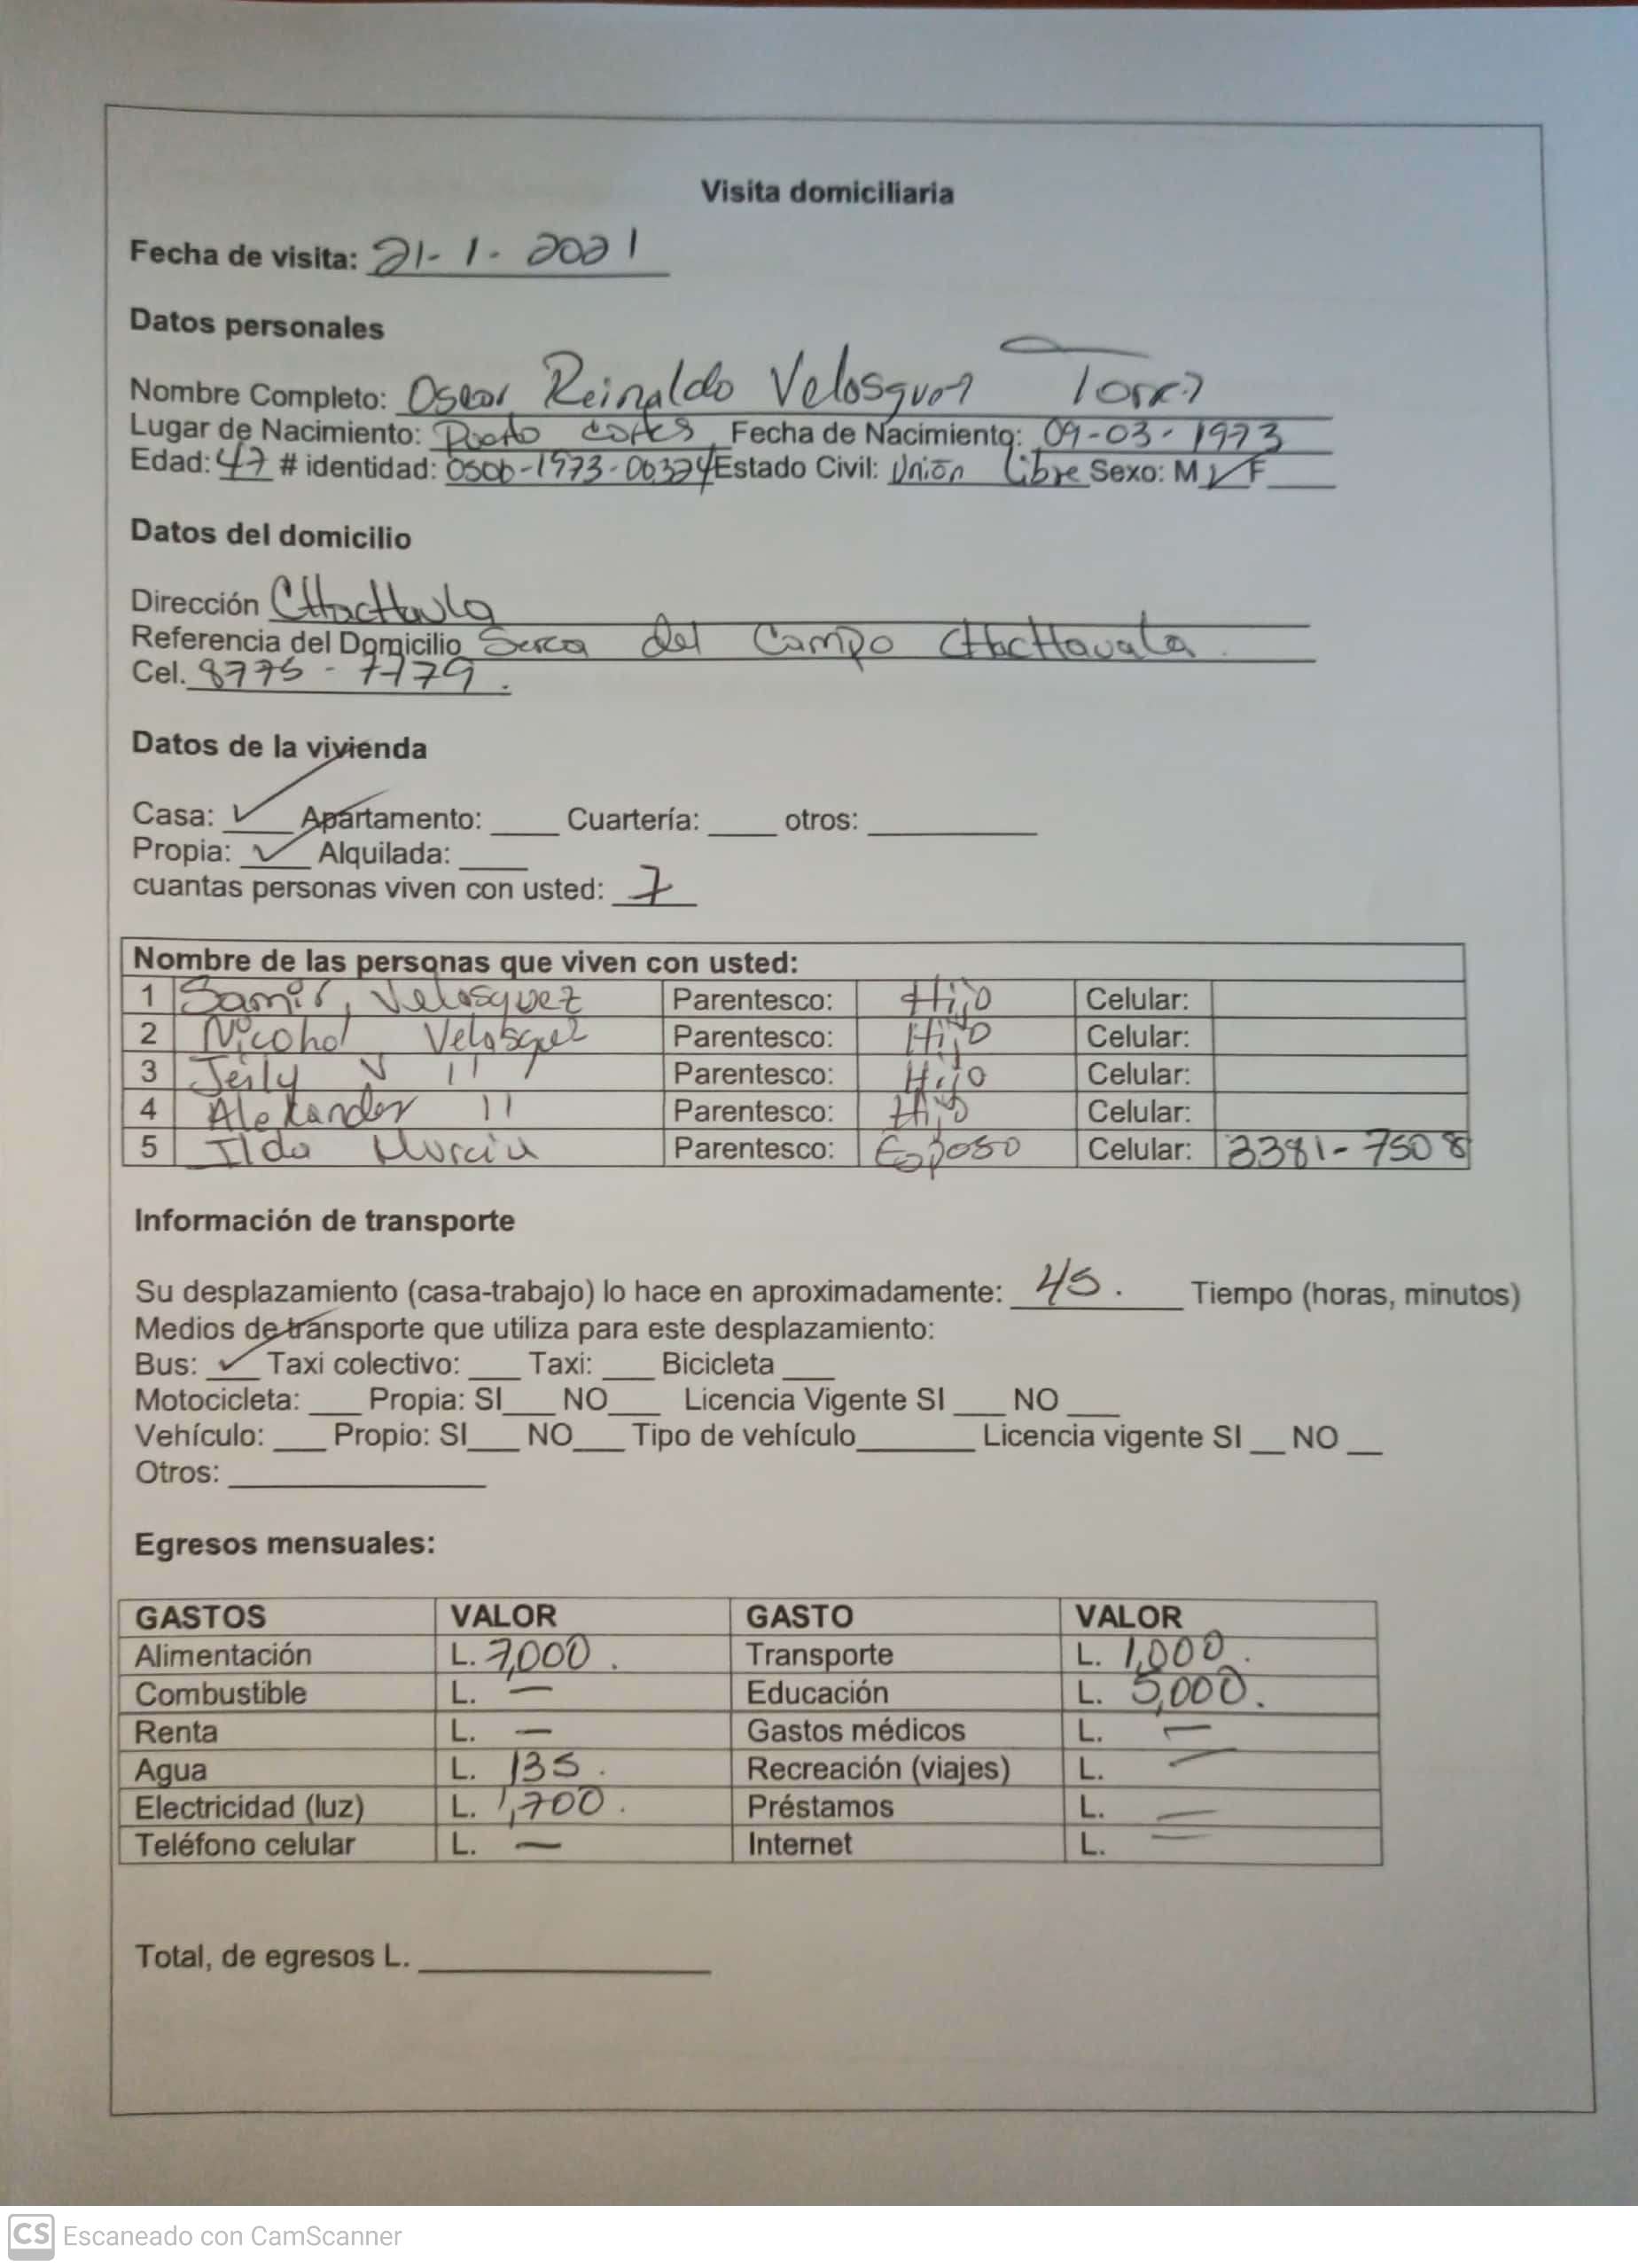 Visita domiciliaria
Fecha de visita: 21-1-2021
Datos personales
Nombre Completo: Oscar Reinaldo Velasquez Torrez
Lugar de Nacimiento: Puerto cortes Fecha de Nacimiento: 09-03-1973
Edad: 47 # identidad: Estado Civil: Unión libre Sexo: M ✓ F____
Datos del domicilio
Dirección
Referencia del Domicilio Serca del Campo
Cel. 8775-7779.
Datos de la vivienda
Casa: ✓ Apartamento: ____ Cuartería: ____ otros: __________
Propia: ✓ Alquilada: ____
cuantas personas viven con usted: 7
Nombre de las personas que viven con usted:
1 Samir, Velasquez Parentesco: Hijo Celular:
2 Nicohol Velasquez Parentesco: Hijo Celular:
3 Jeily V 11 Parentesco: Hijo Celular:
4 Alexander 11 Parentesco: Hijo Celular:
5 Ilda Murcia Parentesco: Esposo Celular: 3381-7508
Información de transporte
Su desplazamiento (casa-trabajo) lo hace en aproximadamente: 45. Tiempo (horas, minutos)
Medios de transporte que utiliza para este desplazamiento:
Bus: ✓ Taxi colectivo: ___ Taxi: ___ Bicicleta ___
Motocicleta: ___ Propia: SI___ NO___ Licencia Vigente SI ___ NO ___
Vehículo: ___ Propio: SI___ NO___ Tipo de vehículo_______ Licencia vigente SI __ NO __
Otros: _______________
Egresos mensuales:
GASTOS VALOR GASTO VALOR
Alimentación L. 7,000. Transporte L. 1,000.
Combustible L. — Educación L. 5,000.
Renta L. — Gastos médicos L. —
Agua L. 135. Recreación (viajes) L. —
Electricidad (luz) L. 1,700. Préstamos L. —
Teléfono celular L. — Internet L. —
Total, de egresos L. _________________
CS Escaneado con CamScanner